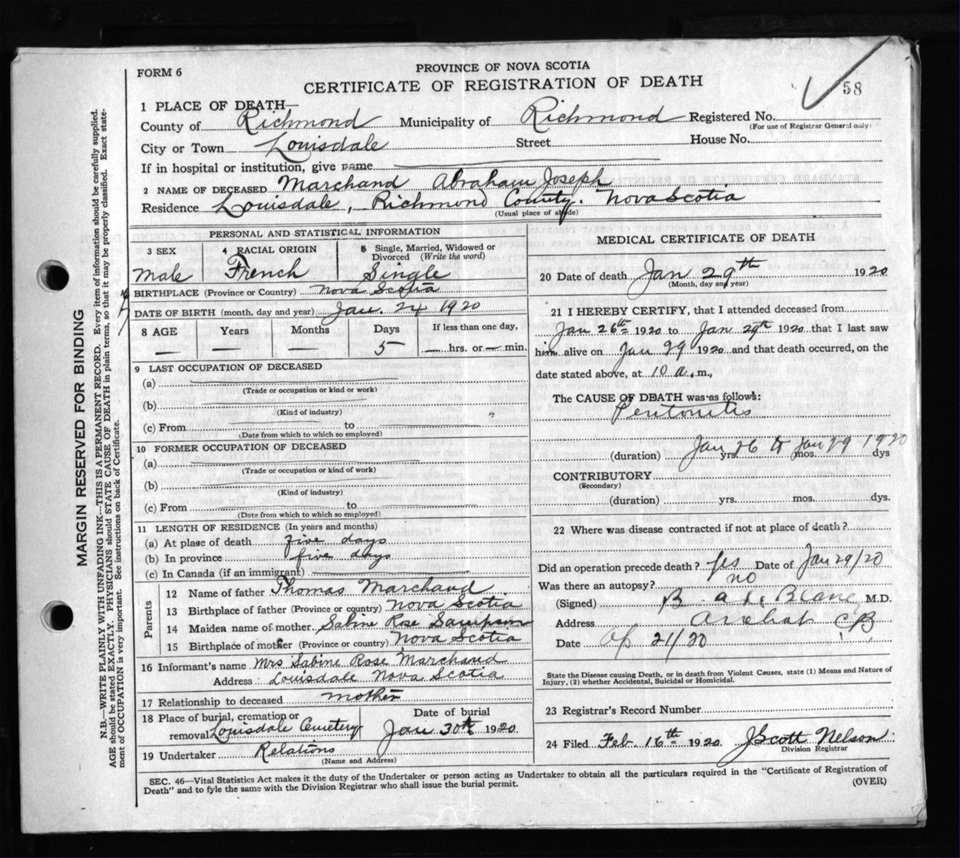 58
FORM 6
PROVINCE OF NOVA SCOTIA
CERTIFICATE OF REGISTRATION OF DEATH
1 PLACE OF DEATH—
County of Richmond Municipality of Richmond Registered No.
(For use of Registrar General only)
City or Town Louisdale Street House No.
If in hospital or institution, give name
2 NAME OF DECEASED Marchand Abraham Joseph
Residence Louisdale, Richmond County. Nova Scotia
(Usual place of abode)
PERSONAL AND STATISTICAL INFORMATION
3 SEX 4 RACIAL ORIGIN 5 Single, Married, Widowed or Divorced (Write the word)
Male French Single
BIRTHPLACE (Province or Country) Nova Scotia
DATE OF BIRTH (month, day and year) Jan. 24 1920
8 AGE Years Months Days If less than one day,
— — 5 — hrs. or — min.
9 LAST OCCUPATION OF DECEASED
(a)
(Trade or occupation or kind of work)
(b)
(Kind of industry)
(c) From to
(Date from which to which so employed)
10 FORMER OCCUPATION OF DECEASED
(a)
(Trade or occupation or kind of work)
(b)
(Kind of industry)
(c) From to
(Date from which to which so employed)
11 LENGTH OF RESIDENCE (In years and months)
(a) At place of death five days
(b) In province five days
(c) In Canada (if an immigrant)
Parents
12 Name of father Thomas Marchand
13 Birthplace of father (Province or country) Nova Scotia
14 Maiden name of mother Sabine Rose Sampson
15 Birthplace of mother (Province or country) Nova Scotia
16 Informant's name Mrs Sabine Rose Marchand
Address Louisdale Nova Scotia
17 Relationship to deceased mother
18 Place of burial, cremation or removal Louisdale Cemetery Date of burial Jan 30th 1920
19 Undertaker Relations
(Name and Address)
MEDICAL CERTIFICATE OF DEATH
20 Date of death Jan 29th 1920
(Month, day and year)
21 I HEREBY CERTIFY, that I attended deceased from
Jan 26th 1920 to Jan 29th 1920 that I last saw
him alive on Jan 29 1920 and that death occurred, on the
date stated above, at 10 a.m.,
The CAUSE OF DEATH was as follows:
Peritonitis
(duration) yrs. mos. dys Jan 26 to Jan 29 1920
CONTRIBUTORY
(Secondary)
(duration) yrs. mos. dys.
22 Where was disease contracted if not at place of death?
Did an operation precede death? yes Date of Jan 29/20
Was there an autopsy? no
(Signed) B. A. Le Blanc M.D.
Address Arichat CB
Date Ap 21/20
State the Disease causing Death, or in death from Violent Causes, state (1) Means and Nature of
Injury, (2) whether Accidental, Suicidal or Homicidal.
23 Registrar's Record Number
24 Filed Feb 16th 1920 J Scott Nelson
Division Registrar
SEC. 46—Vital Statistics Act makes it the duty of the Undertaker or person acting as Undertaker to obtain all the particulars required in the "Certificate of Registration of
Death" and to fyle the same with the Division Registrar who shall issue the burial permit.
(OVER)
MARGIN RESERVED FOR BINDING
N.B.—WRITE PLAINLY, WITH UNFADING INK—THIS IS A PERMANENT RECORD. Every item of information should be carefully supplied.
AGE should be stated EXACTLY. PHYSICIANS should STATE CAUSE OF DEATH in plain terms, so that it may be properly classified. Exact state-
ment of OCCUPATION is very important. See instructions on back of Certificate.